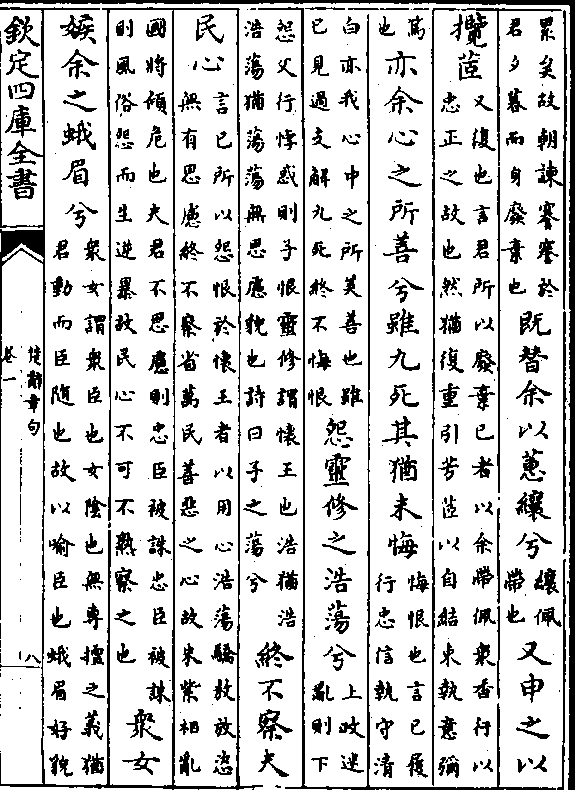 累矣故朝諫謇謇於
君夕暮而身廢棄也
既替余以蕙纕兮
纕佩
帶也
又申之以
攬茝
又復也言君所以廢棄已者以余帶佩衆香行以
忠正之故也然猶復重引芳茝以自結束執意彌
篤
也
亦余心之所善兮雖九死其猶未悔
悔恨也言已履
行忠信執守清
白亦我心中之所美善也雖
已見過支解九死終不悔恨
怨靈修之浩蕩兮
上政迷
亂則下
怨父行悖惑則子恨靈修謂懷王也浩猶浩
浩蕩猶蕩蕩無思慮貌也詩曰子之蕩兮
終不察夫
民心
言已所以怨恨於懷王者以用心浩蕩驕敖放恣
無有思慮終不察省萬民善惡之心故朱紫相亂
國將傾危也夫君不思慮則忠臣被誅忠臣被誅
則風俗怨而生逆暴故民心不可不熟察之也
衆女
嫉余之蛾眉兮
衆女謂衆臣也女陰也無專擅之義猶
君動而臣隨也故以喻臣也蛾眉好貌
欽定四庫全書
楚辭章句
卷一
八